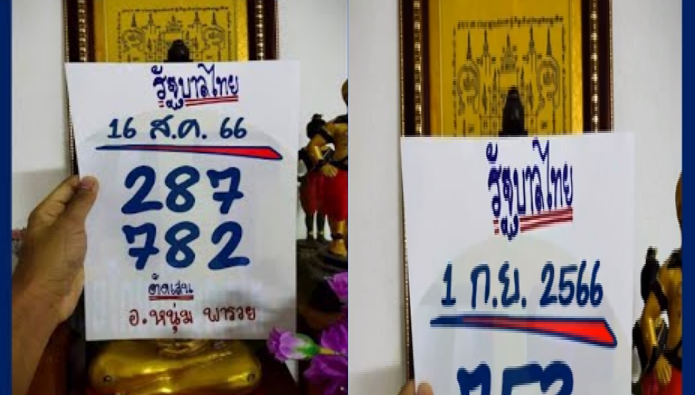 รัฐบาลไทย
16 ส.ค. 66
287
782
อ.หนุ่ม พารวย
รัฐบาลไทย
1 ก.ย. 2566